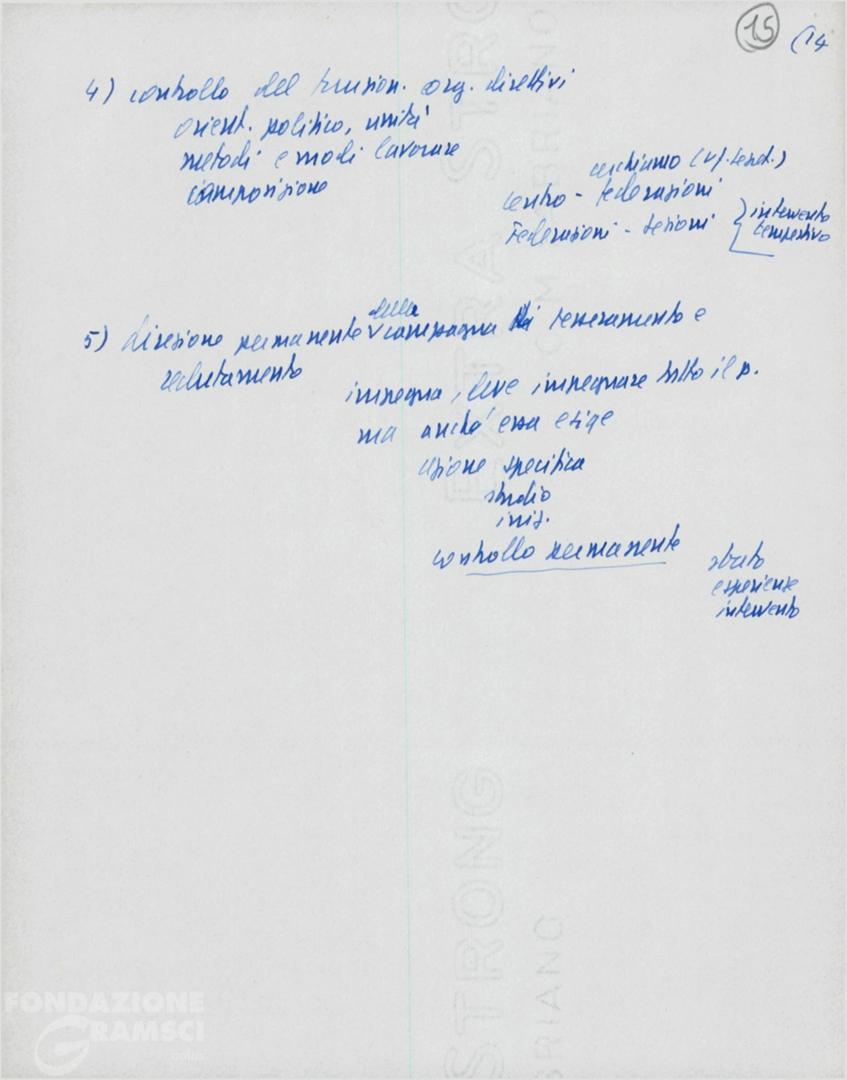 15
(14
4) controllo del funzion. org. direttivi
orient. politico, unità
metodi e modi lavorare
composizione
centro - federazioni
Federazioni - sezioni
intervento
tempestivo
5) direzione permanente della campagna di tesseramento e
reclutamento
impegna, deve impegnare tutto il p.
ma anch'essa esige
azione specifica
studio
iniz.
controllo permanente
stato
esperienze
intervento
EXTRA STRONG
STRONG
BRIANO
FONDAZIONE
GRAMSCI
onlus